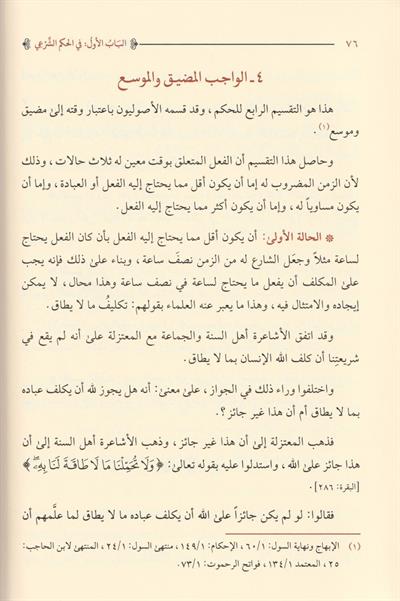 ٧٦ البَابُ الأولُ: في الحكم الشَّرْعِي
٤ ـ الواجب المضيق والموسع
هذا هو التقسيم الرابع للحكم، وقد قسمه الأصوليون باعتبار وقته إلىٰ مضيق
وموسع(١).
وحاصل هذا التقسيم أن الفعل المتعلق بوقت معين له ثلاث حالات، وذلك
لأن الزمن المضروب له إما أن يكون أقل مما يحتاج إليه الفعل أو العبادة، وإما أن
يكون مساوياً له، وإما أن يكون أكثر مما يحتاج إليه الفعل.
❋ الحالة الأولىٰ: أن يكون أقل مما يحتاج إليه الفعل بأن كان الفعل يحتاج
لساعة مثلاً وجعَل الشارع له من الزمن نصفَ ساعة، وبناء علىٰ ذلك فإنه يجب
علىٰ المكلف أن يفعل ما يحتاج لساعة في نصف ساعة وهذا محال، لا يمكن
إيجاده والامتثال فيه، وهذا ما يعبر عنه العلماء بقولهم: تكليفُ ما لا يطاق.
وقد اتفق الأشاعرة أهل السنة والجماعة مع المعتزلة علىٰ أنه لم يقع في
شريعتِنا أن كلف الله الإنسان بما لا يطاق.
واختلفوا وراء ذلك في الجواز، علىٰ معنىٰ: أنه هل يجوز لله أن يكلف عباده
بما لا يطاق أم أن هذا غير جائز؟.
فذهب المعتزلة إلىٰ أن هذا غير جائز، وذهب الأشاعرة أهل السنة إلىٰ أن
هذا جائز علىٰ الله، واستدلوا عليه بقوله تعالىٰ: ﴿وَلَا تُحَمِّلْنَا مَا لَا طَاقَةَ لَنَا بِهِۦۖ﴾
[البقرة: ٢٨٦].
فقالوا: لو لم يكن جائزاً علىٰ الله أن يكلف عباده ما لا يطاق لما علَّمهم أن
(١) الإبهاج ونهاية السول: ٦٠/١، الإحكام: ١٤٩/١، منتهىٰ السول: ٢٤/١، المنتهىٰ لابن الحاجب:
٢٥، المعتمد ١٣٤/١، فواتح الرحموت: ٠٧٣/١